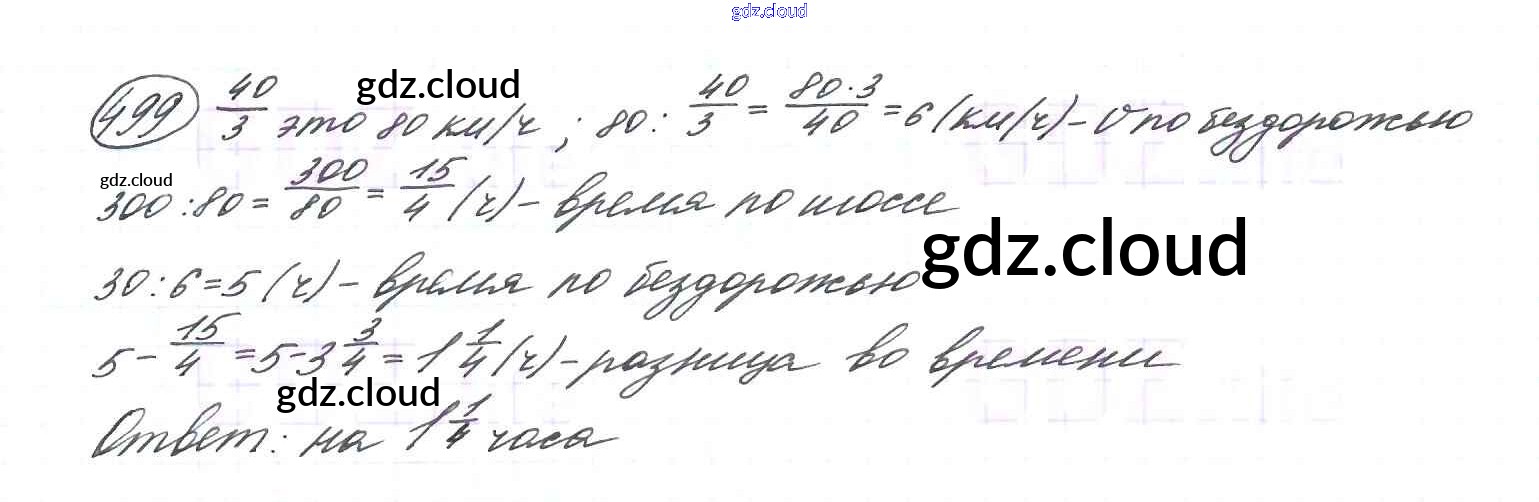 gdz.cloud
499 40/3 это 80 км/ч ; 80 : 40/3 = 80·3/40 = 6 (км/ч) – v по бездорожью
gdz.cloud
gdz.cloud
300 : 80 = 300/80 = 15/4 (ч) – время по шоссе
gdz.cloud
30 : 6 = 5 (ч) – время по бездорожью
5 – 15/4 = 5 – 3 3/4 = 1 1/4 (ч) – разница во времени
gdz.cloud
Ответ: на 1 1/4 часа